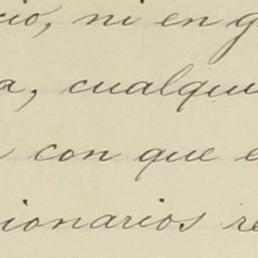 cio, ni en g
a, cualqui
con que e
ionarios re